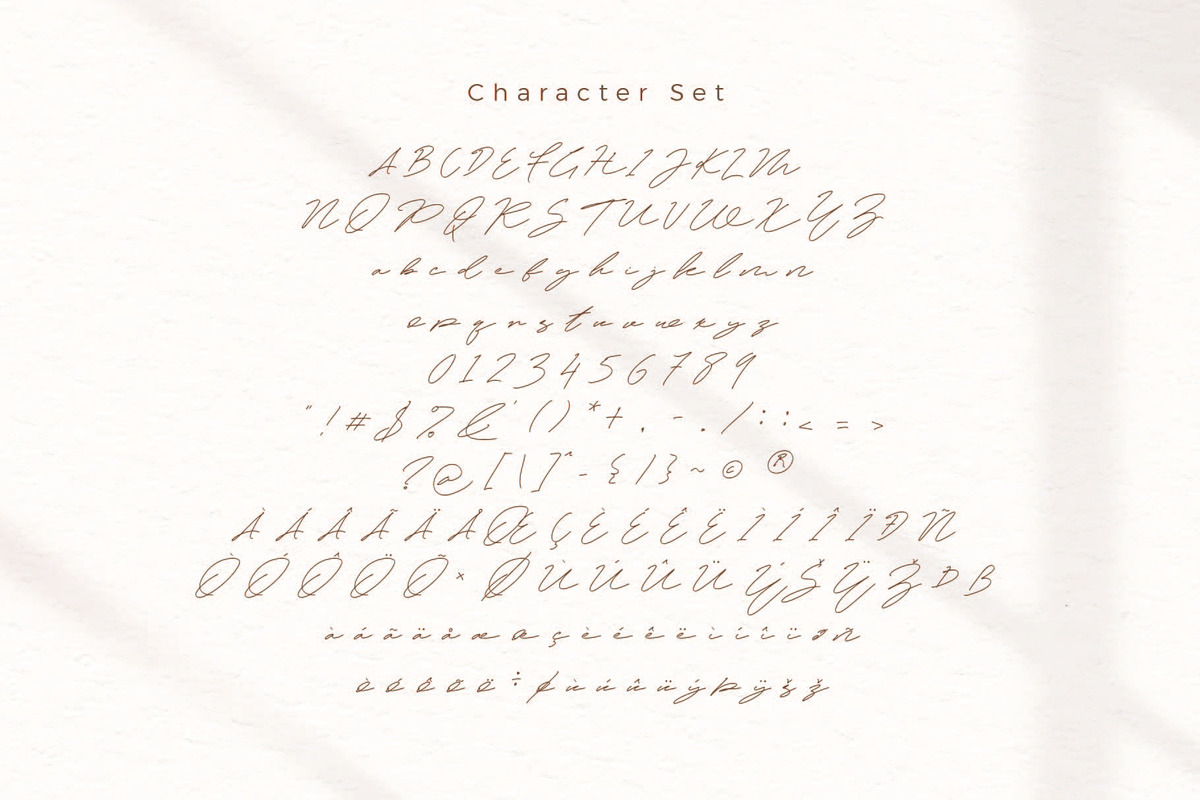 Character Set
A B C D E F G H I J K L M
N O P Q R S T U V W X Y Z
a b c d e f g h i j k l m n
o p q r s t u v w x y z
0 1 2 3 4 5 6 7 8 9
" ! # $ % & ' ( ) * + , - . / : ; < = >
? @ [ \ ] ^ - { | } ~ © ®
À Á Â Ã Ä Å Œ Ç È É Ê Ë Ì Í Î Ï Ð Ñ
Ò Ó Ô Ö Õ × Ø Ù Ú Û Ü Ý Š Ÿ Ž Đ
à á ã ä å æ œ ç è é ê ë ì í î ï ñ
ò ó ô õ ö ÷ ø ù ú û ü ý þ ÿ š ž